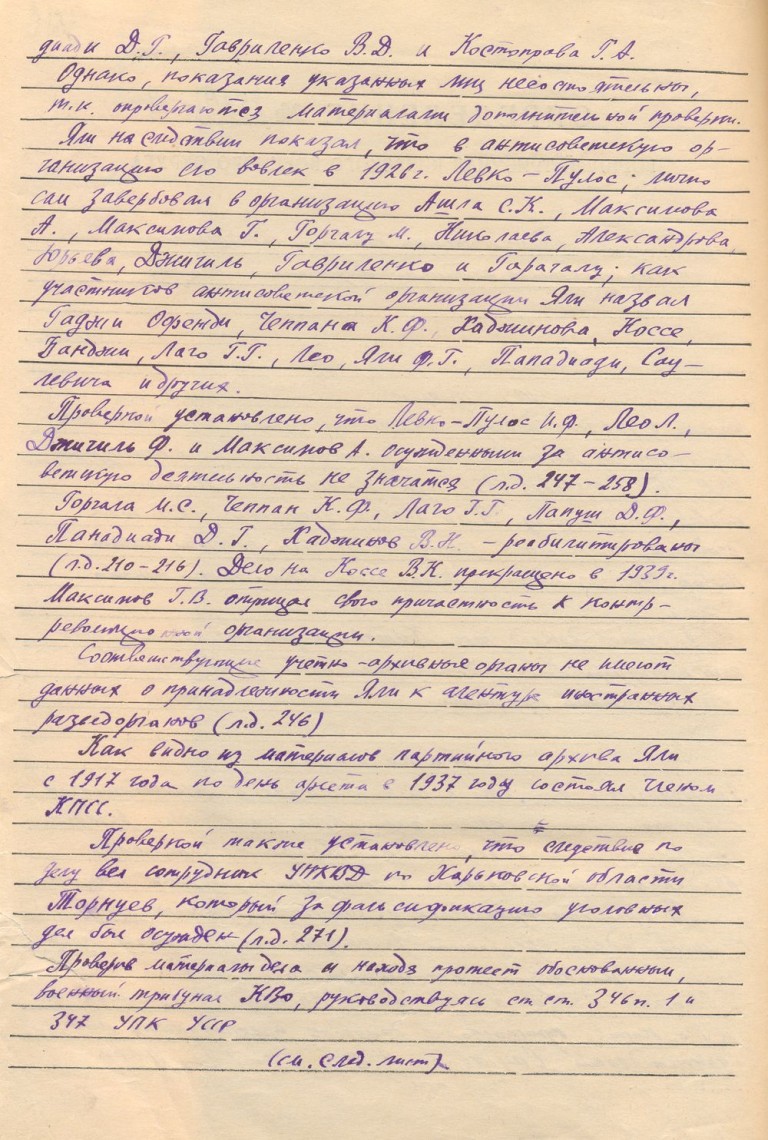 диади Д.Г., Гавриленко В.Д. и Костопрова Г.А.
Однако, показания указанных лиц несостоятельны,
т.к. опровергаются материалами дополнительной проверки.
Яли на следствии показал, что в антисоветскую ор-
ганизацию его вовлек в 1926г. Левко-Пулос; лично
сам завербовал в организацию Ашла С.К., Максимова
А., Максимова Г., Горгалу М., Николаева, Александрова,
Юрьева, Джичиль, Гавриленко и Гарагалу; как
участников антисоветской организации Яли назвал
Гаджи Офенди, Чеппана К.Ф., Хаджинова, Коссе,
Банджи, Лаго Г.Г., Лео, Яли Ф.Г., Пападиади, Сау-
левича и других.
Проверкой установлено, что Левко-Пулос И.Ф., Лео Л.,
Джичиль Ф. и Максимов А. осужденными за антисо-
ветскую деятельность не значатся (л.д. 247-258).
Горгала М.С., Чеппан К.Ф., Лаго Г.Г., Папуш Д.Ф.,
Панадиади Д.Г., Хаджинов В.Н. - реабилитированы
(л.д. 210-216). Дело на Коссе В.К. прекращено в 1939г.
Максимов Г.В. отрицал свою причастность к контр-
революционной организации.
Соответствующие учетно-архивные органы не имеют
данных о принадлежности Яли к агентуре иностранных
разведорганов (л.д. 246)
Как видно из материалов партийного архива Яли
с 1917 года по день ареста в 1937 году состоял членом
КПСС.
Проверкой также установлено, что следствие по
делу вел сотрудник УНКВД по Харьковской области
Торнуев, который за фальсификацию уголовных
дел был осужден (л.д. 271).
Проверив материалы дела и находя протест обоснованным,
военный трибунал КВО, руководствуясь ст.ст. 346 п. 1 и
347 УПК УССР
(см. след. лист)